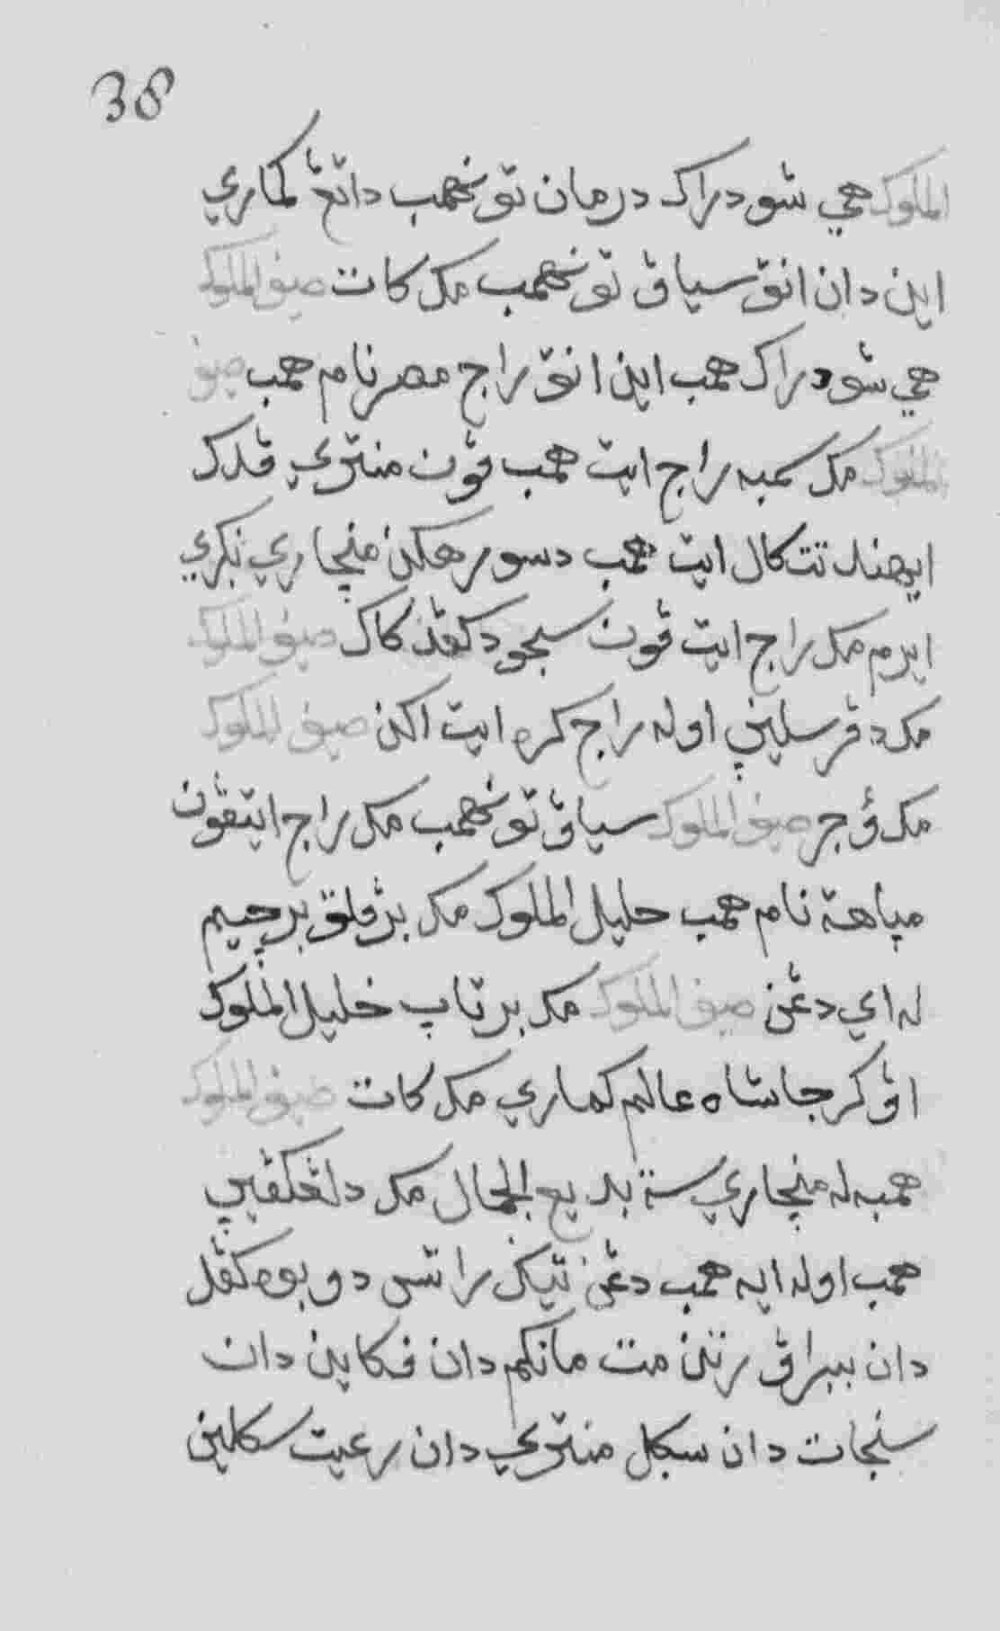 38
الملوک هي شودراک درمان تونهمب داتڠ کماري
اين دان انق سياڤ توان همب مک کات صيف الملوک
هي شودراک همب اين انق راج مصر نام همب صيف
الملوک مک سمبه راج ايت همب ڤون منتري ڤدک
ايهند تتکال ايت همب دسورهکن منچاري نݢري
ايرم مک راج ايت ڤون سجود کڤد کاک صيف الملوک
مک دڤرسلين اوله راج کره ايت اکن صيف الملوک
مک اوجر صيف الملوک سياڤ توان همب مک راج ايتڤون
مپاهت نام همب خليل الملوک مک برڤلق برچيم
له اي دڠن صيف الملوک مک برتاپ خليل الملوک
اڤ کرجا شاه عالم کماري مک کات صيف الملوک
همبه له منچاري ستي بديع الجمال مک دلڠکڤي
همب اوله ايه همب دڠن تيݢ راتس دوبوه کڤل
دان ببراڤ رتن مت مانکم دان ڤکاين دان
سنجات دان سݢل منتري دان رعيت سکالين